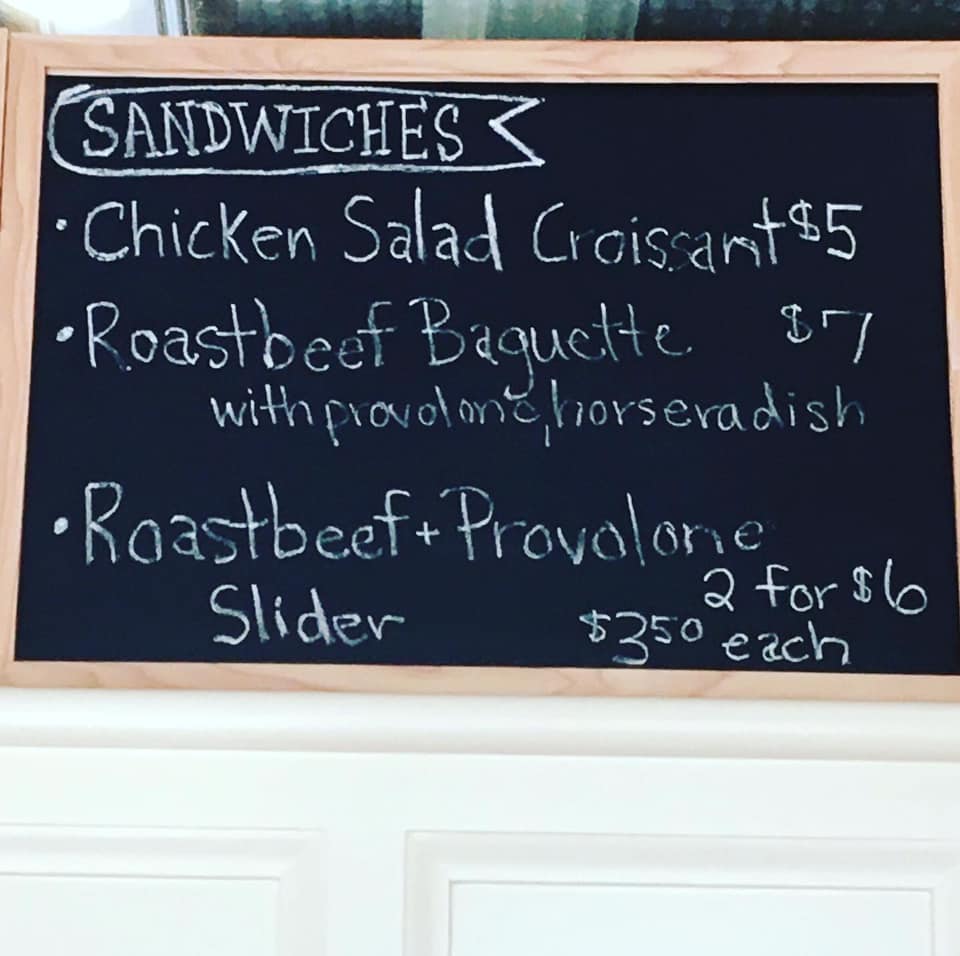 SANDWICHES
• Chicken Salad Croissant $5
• Roastbeef Baguette $7
with provolone, horseradish
• Roastbeef + Provolone
Slider 2 for $6
$350 each